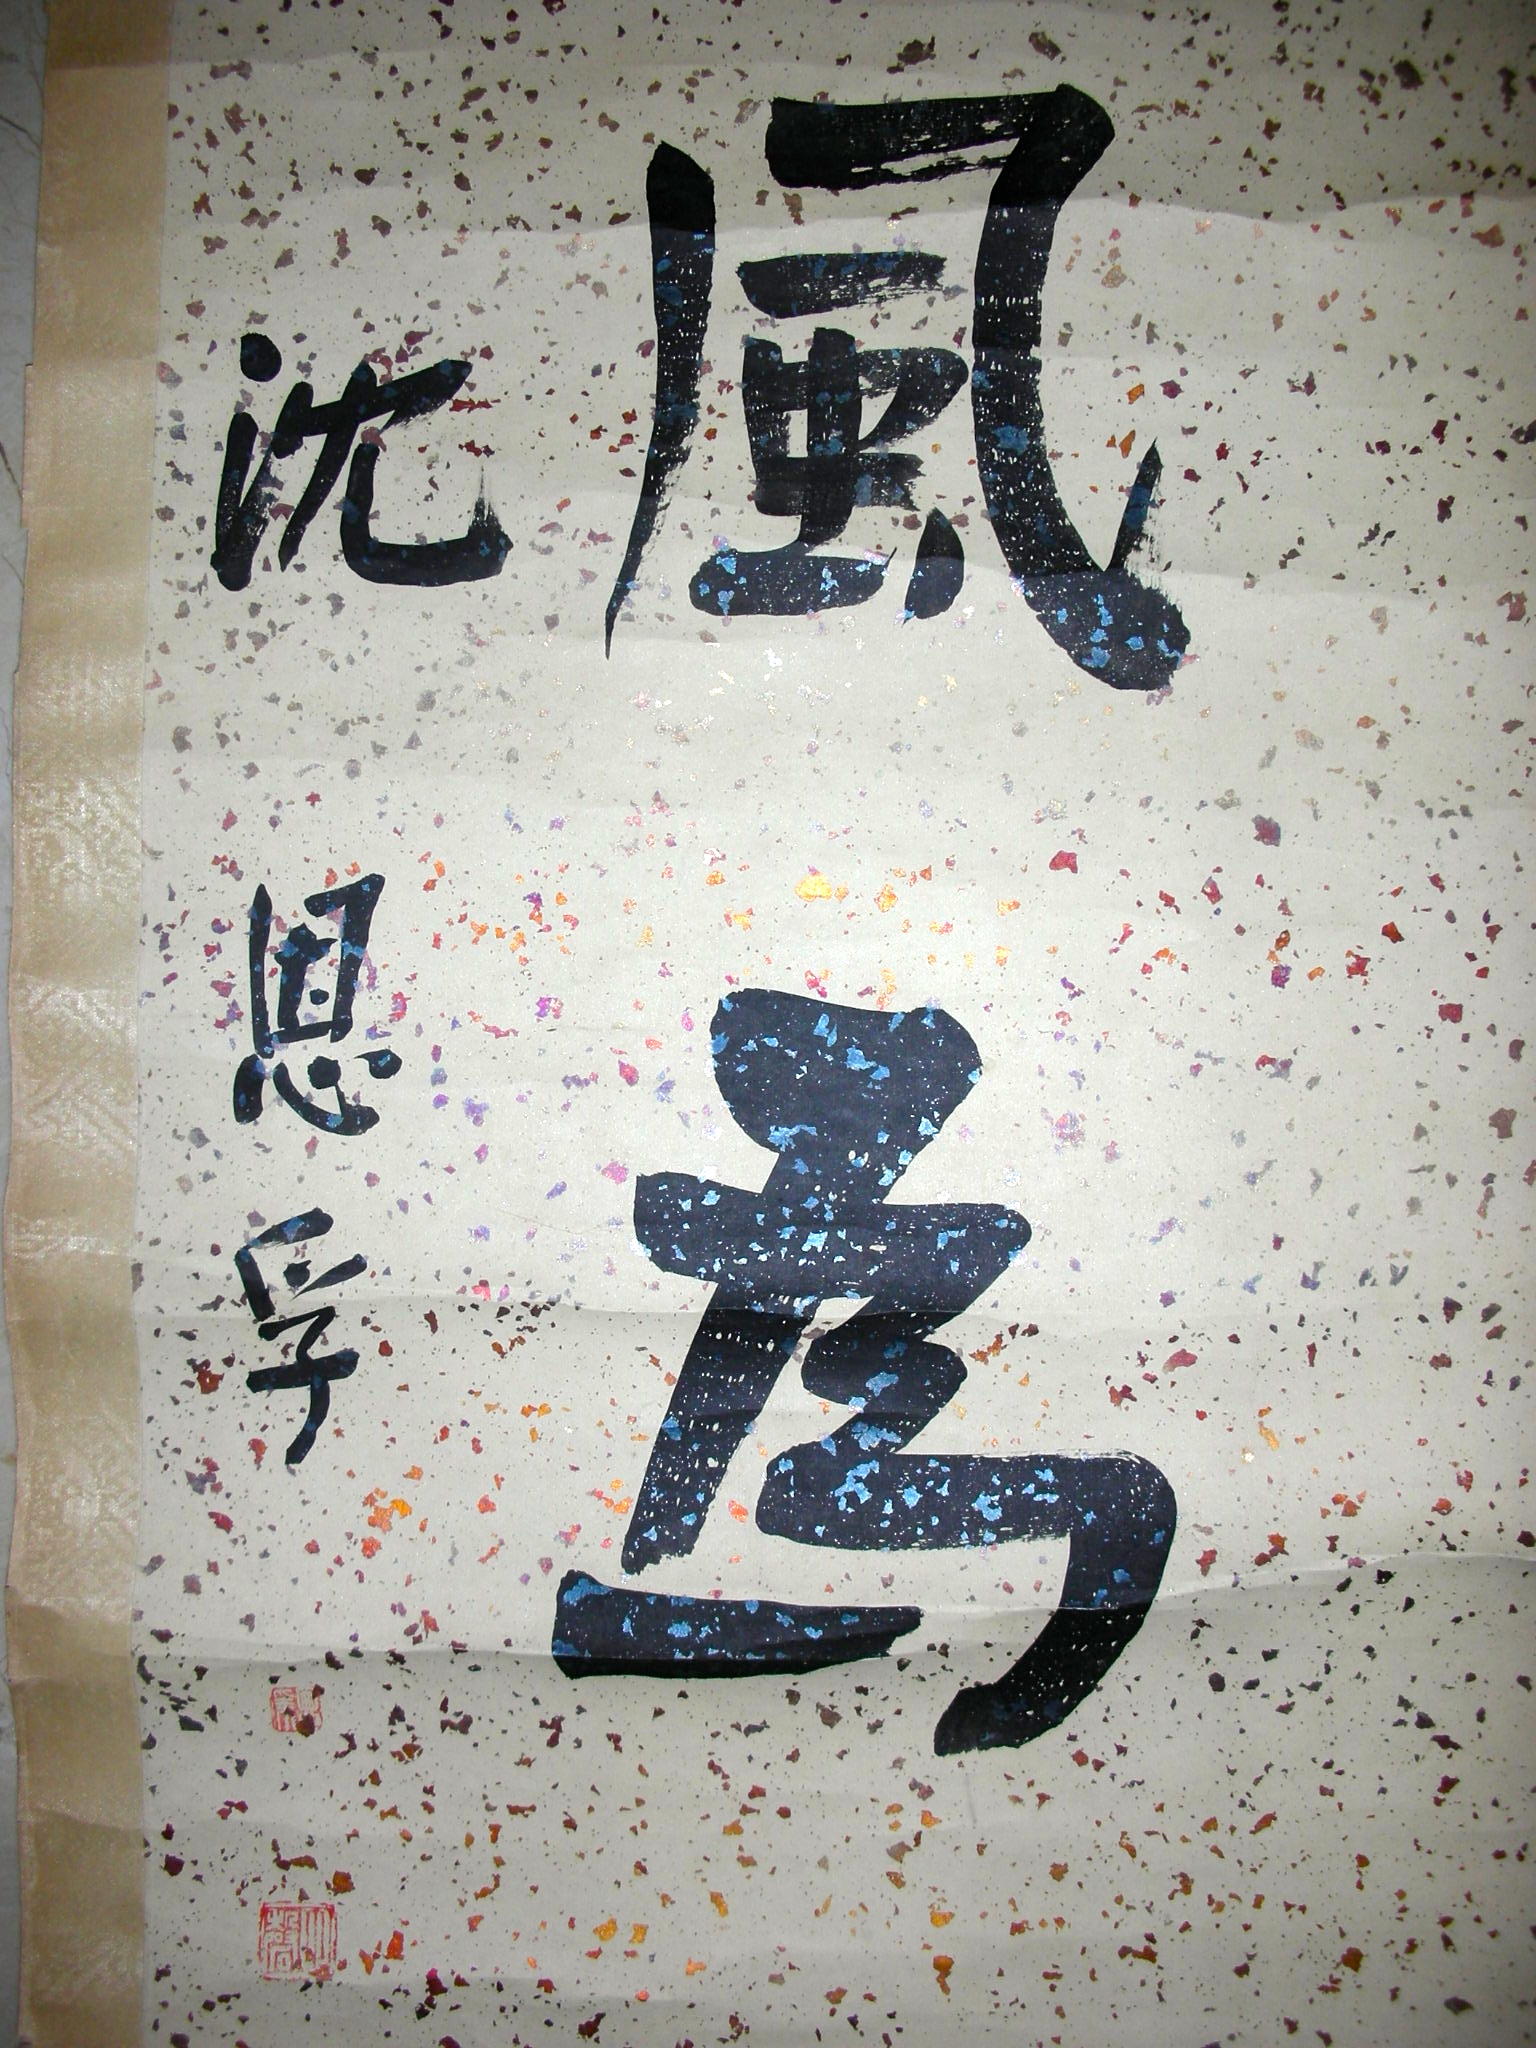 風為
沈恩孚